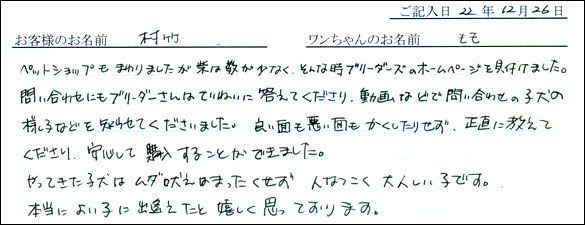 ご記入日 22 年 12 月 26 日
お客様のお名前 村竹 ワンちゃんのお名前 モモ
ペットショップもまわりましたが柴は数が少なく、そんな時ブリーダーズのホームページを見付けました。
問い合わせにもブリーダーさんはていねいに答えてくださり、動画などで問い合わせの子犬の
様子などを知らせてくださいました。良い面も悪い面もかくしたりせず、正直に教えて
くださり、安心して購入することができました。
やってきた子犬はムダ吠えはまったくせず人なつこく大人しい子です。
本当によい子に出逢えたと嬉しく思っております。